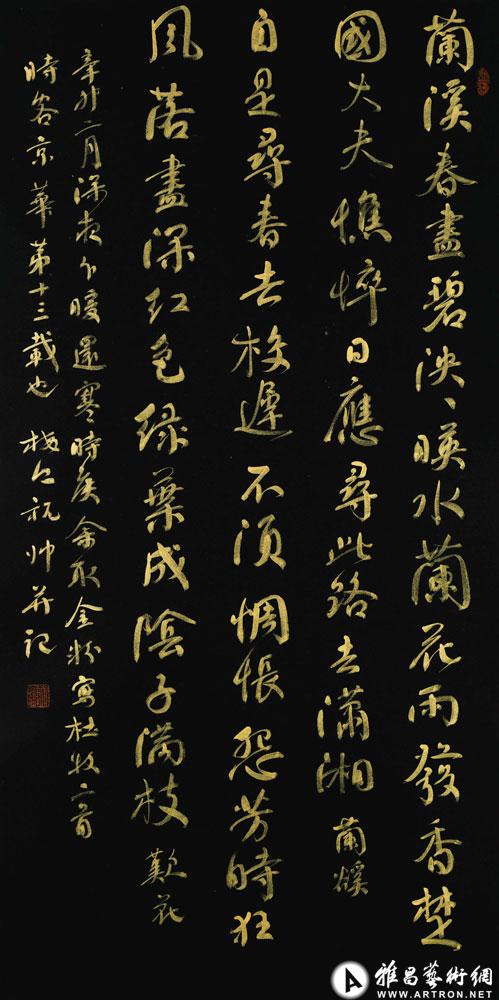 蘭溪春盡碧泱、暎水蘭花雨發香楚
國大夫憔悴日應尋此路去瀟湘 蘭谿
自是尋春去校遲不須惆悵怨芳時狂
風落盡深紅色綠葉成陰子滿枝 歎花
辛卯二月深夜乍暖還寒時矦余取金粉寫杜牧二首
時客京華第十三載也 祝帅并记
雅昌藝術網
WWW.ARTRON.NET